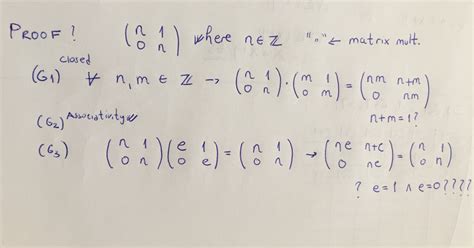 PROOF? ( n 1 ; 0 n ) where n ∈ ℤ "∘" ← matrix mult.
closed
(G1) ∀ n, m ∈ ℤ → ( n 1 ; 0 n ) · ( m 1 ; 0 m ) = ( nm n+m ; 0 nm )
n+m=1?
(G2) Associativity
(G3) ( n 1 ; 0 n ) ( e 1 ; 0 e ) = ( n 1 ; 0 n ) → ( ne n+e ; 0 ne ) = ( n 1 ; 0 n )
? e=1 ∧ e=0????